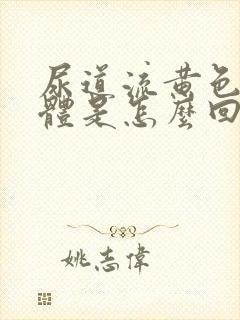 尿道流黃色
體是怎麼回
姚志偉